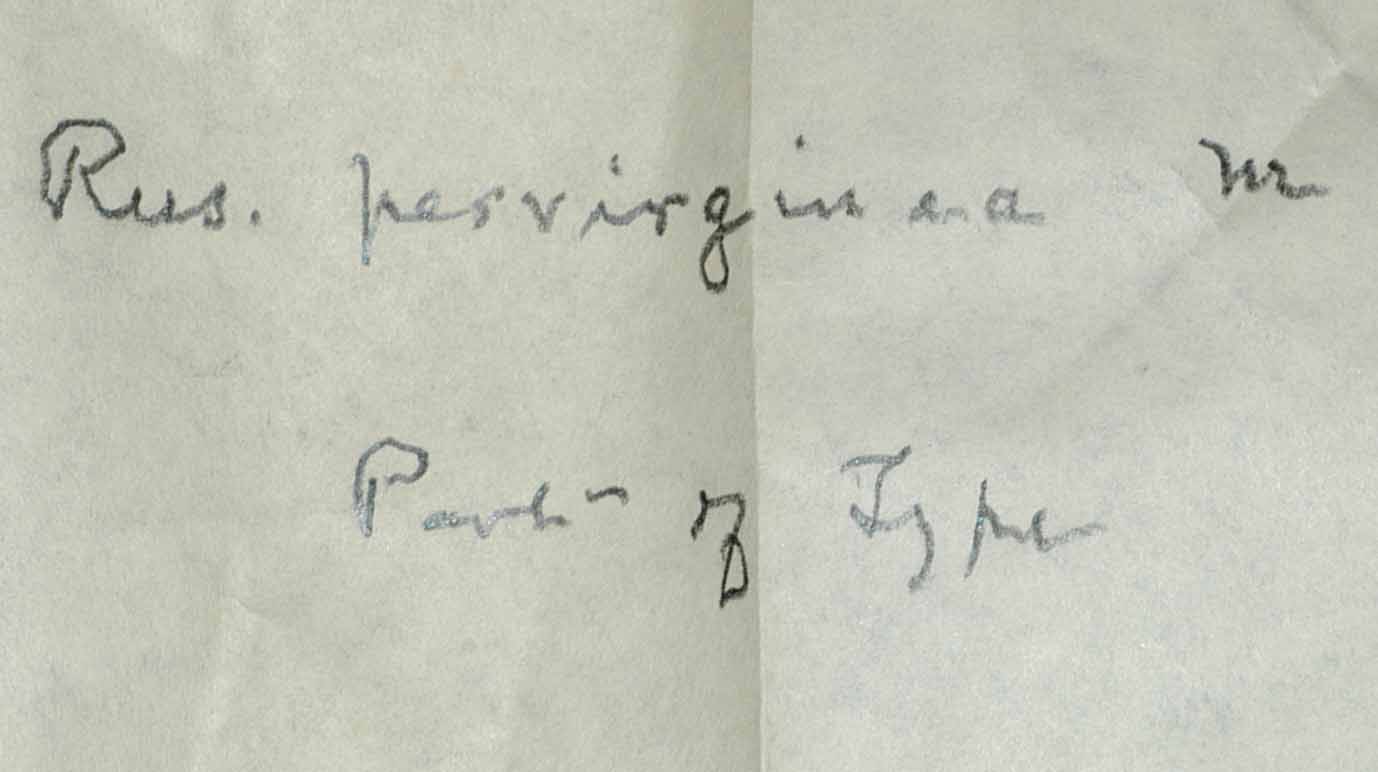 Rus. pervirginea m
Part of Type